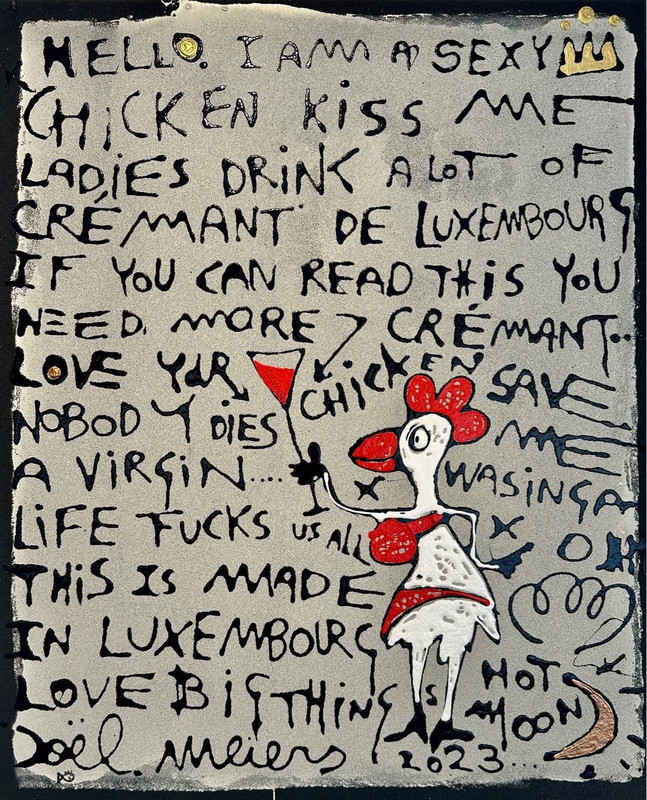 HELLO. I AM A SEXY
CHICKEN KISS ME
LADIES DRINK A LOT OF
CRÉMANT DE LUXEMBOURG
IF YOU CAN READ THIS YOU
NEED. MORE CRÉMANT..
LOVE YOUR CHICKEN SAVE
NOBODY DIES ME
A VIRGIN.... X WASINGA
LIFE FUCKS US ALL X OK
THIS IS MADE
IN LUXEMBOURG
LOVE BIG THINGS HOT
MOON
Joël. Meiers 2023...